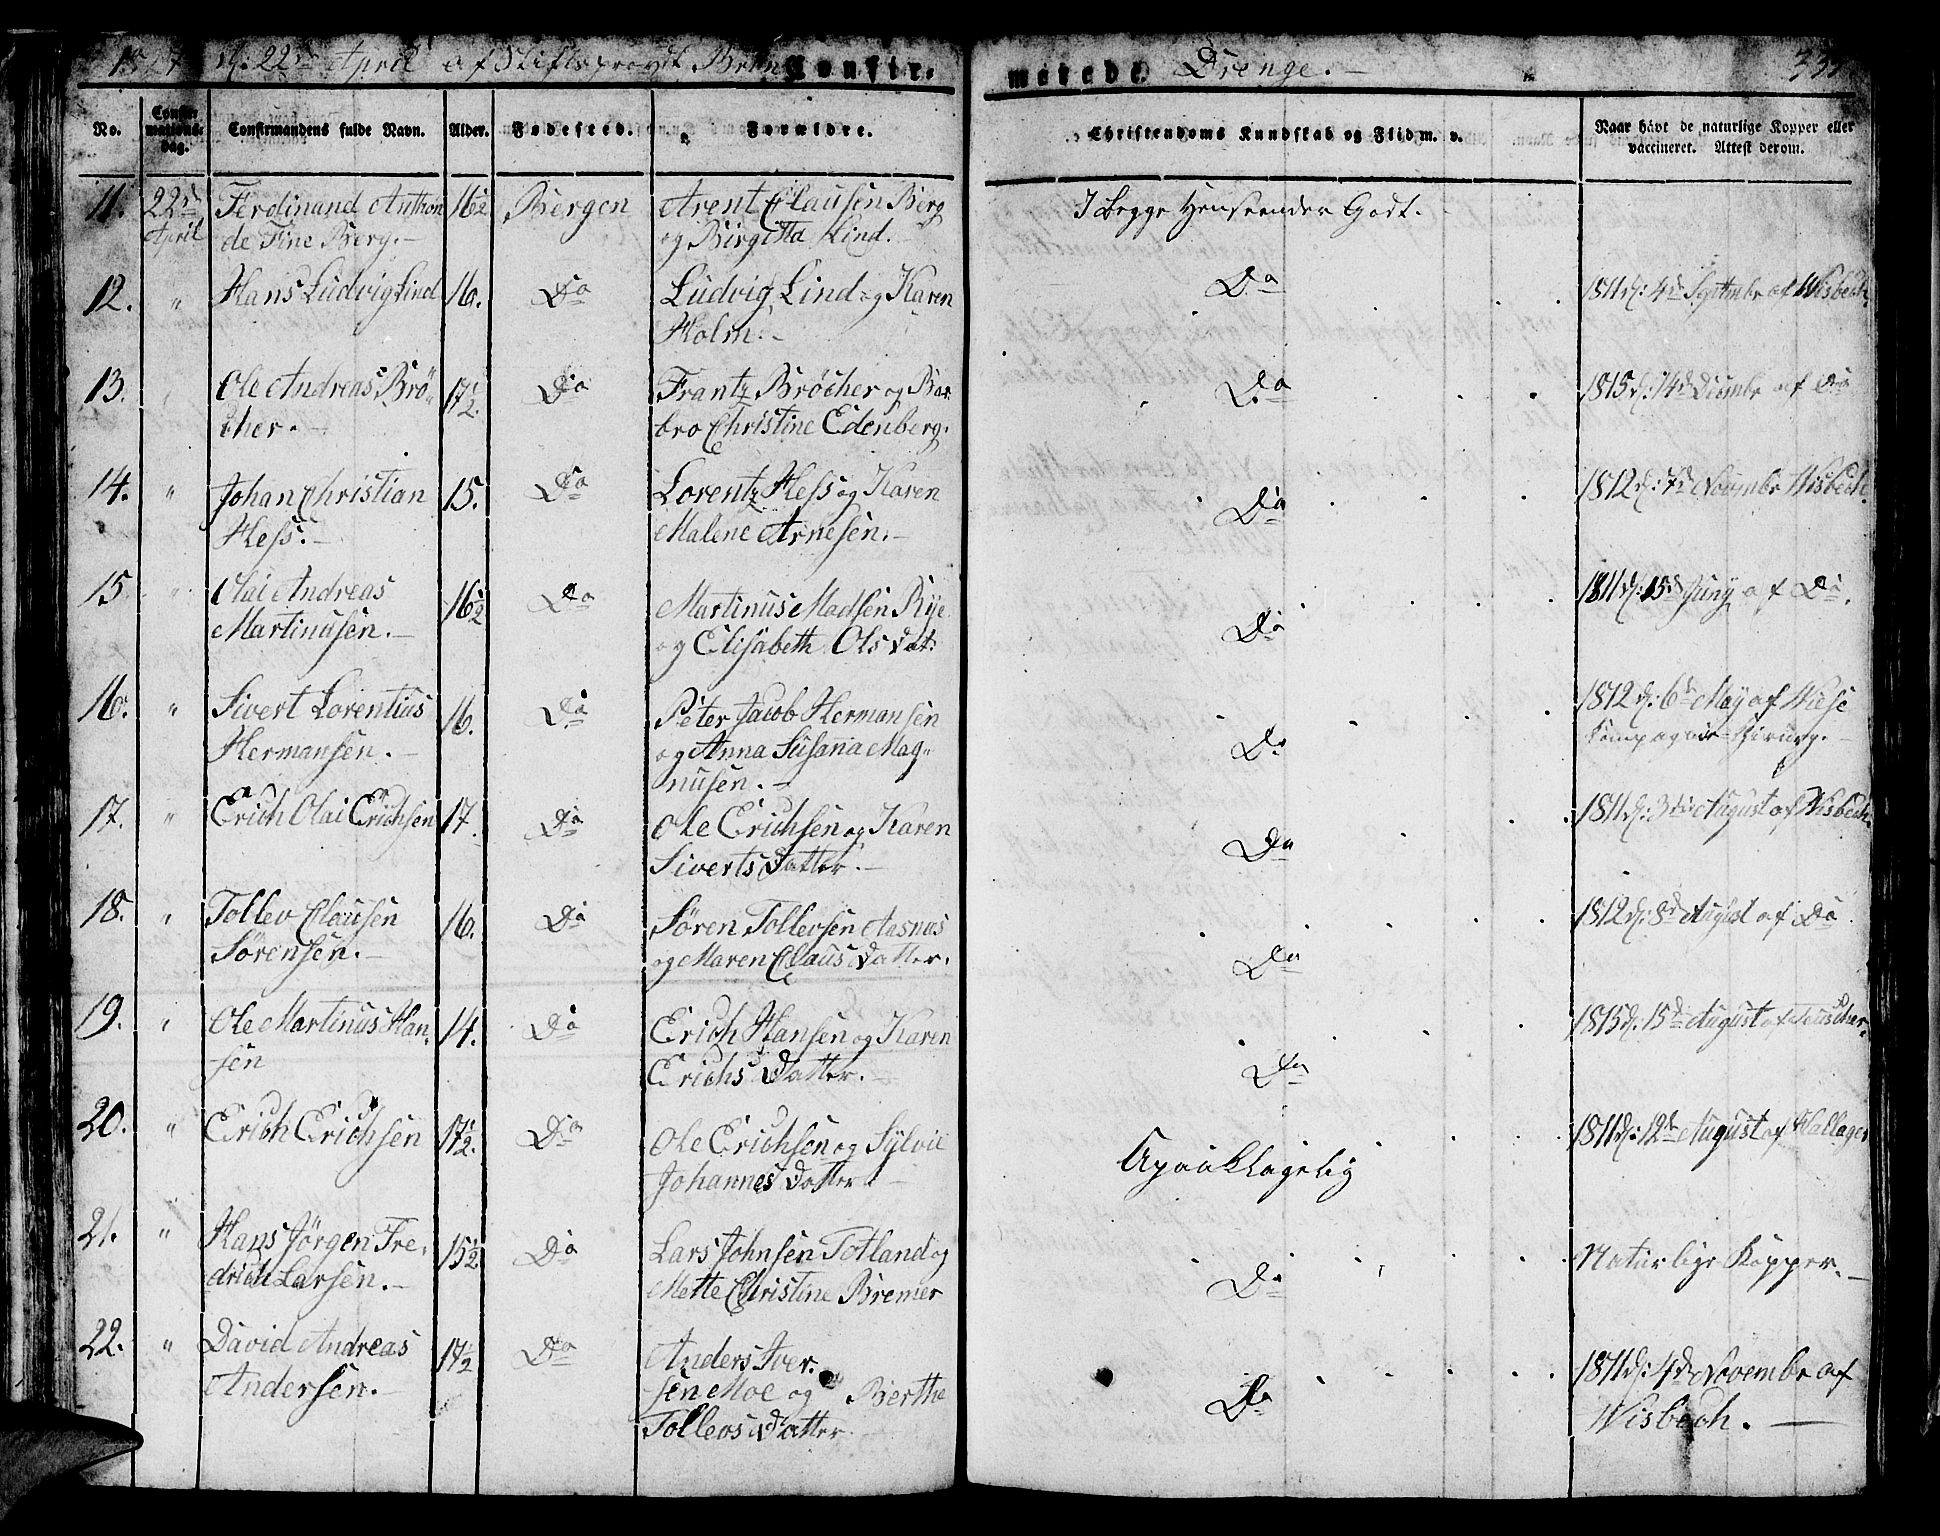 1827 d: 22de April af Stiftsprovst Confir-
merede. Drenge. — 335
No. Confir-mations-dag. Confirmandens fulde Navn. Alder. Fødested. Forældre. Christendoms Kundskab og Flid m. v. Naar havt de naturlige Kopper eller
vaccineret. Attest derom.
11. 22de Ferdinand Anthon 16½ Bergen Arent Clausen Berg I Begge Henseender Godt.
April de Fine Berg. — og Birgitta Lind. —
12. " Hans Ludvig Lind 16. Do Ludvig Lind og Karen Do 1811 d: 4de Septembr af Wisbech
Holm. -
13. " Ole Andreas Brö- 17½. Do Frantz Bröcher og Bar- Do 1815 d: 14de Decembr af Do
cher. — bro Christine Edenberg.
14. " Johan Christian 15. Do Lorentz Hess og Karen Do 1812 d: 7de Novembr Wisbech
Hess. — Malene Arnesen. —
15. " Olai Andreas 16½ Do Martinus Madsen Rye Do 1811 d: 15de Juny af Do.
Martinusen. — og Elisabeth Ols dat:
16. " Sivert Lorentius 16. Do Peter Jacob Hermansen Do 1812 d: 6te May af Wiese
Hermansen. — og Anna Susania Mag- Compagnie-Chirurg. —
nusen. —
17. " Erich Olai Erichsen 17. Do Ole Erichsen og Karen Do 1811 d: 3die August af Wisbech.
Siverts Datter. —
18. " Tollev Clausen 16. Do Sören Tollevsen Aasnas Do 1812 d: 8de August af Do
Sörensen. — og Maren Claus Datter.
19. " Ole Martinus Han- 14. Do Erich Hansen og Karen Do 1815 d: 15de August af
sen Erichs Datter. —
20. " Erich Erichsen 17½. Do Ole Erichsen og Sylvie Upaaklagelig 1811 d: 12te August af Hallager
Johannes Datter. —
21. " Hans Jörgen Fre- 15½ Do Lars Johnsen Totland og Do Naturlige Kopper. —
drich Larsen. — Mette Christine Bremer
22. " David Andreas 17½ Do Anders Iver- Do 1811 d: 4de Novembr af
Andersen. — sen Moe og Berthe Wisbech. —
Tollevs Datter